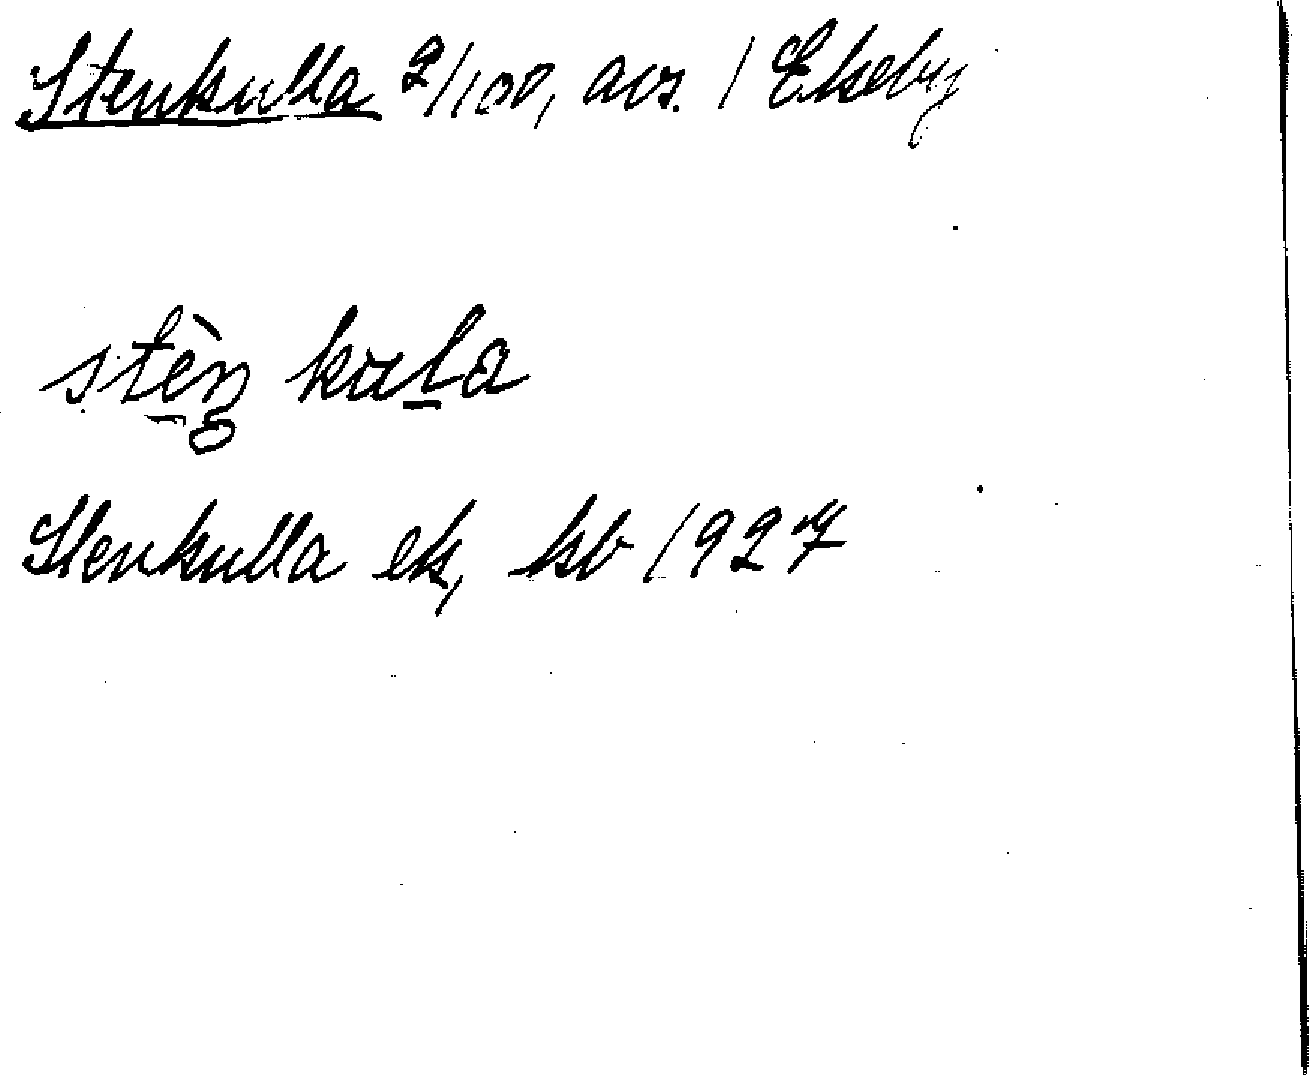 Stenkulla 2/100, avs. / Ekeby
stèn kula
Stenkulla ek, kb 1927